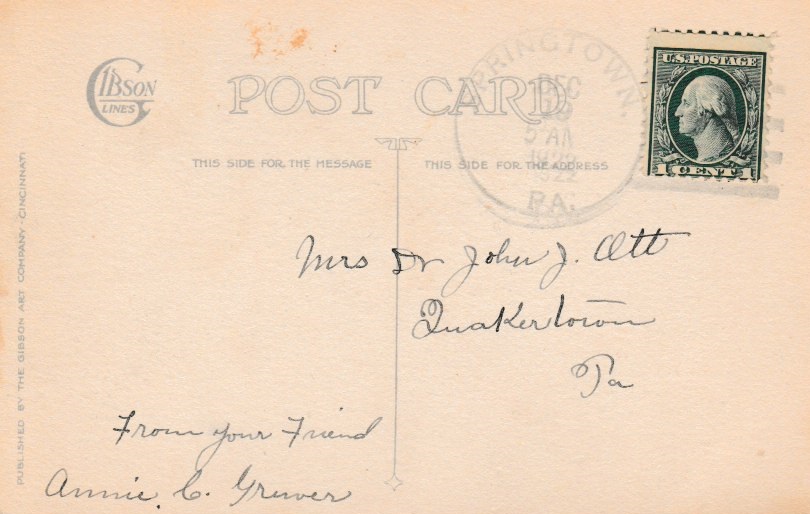 GIBSON
LINES
POST CARD
THIS SIDE FOR THE MESSAGE
THIS SIDE FOR THE ADDRESS
PRINGTOWN.
DEC
5 AM
PA.
U.S. POSTAGE
1 CENT 1
Mrs Dr John J. Ott
Quakertown
Pa
From your Friend
Annie C. Grewer
PUBLISHED BY THE GIBSON ART COMPANY - CINCINNATI